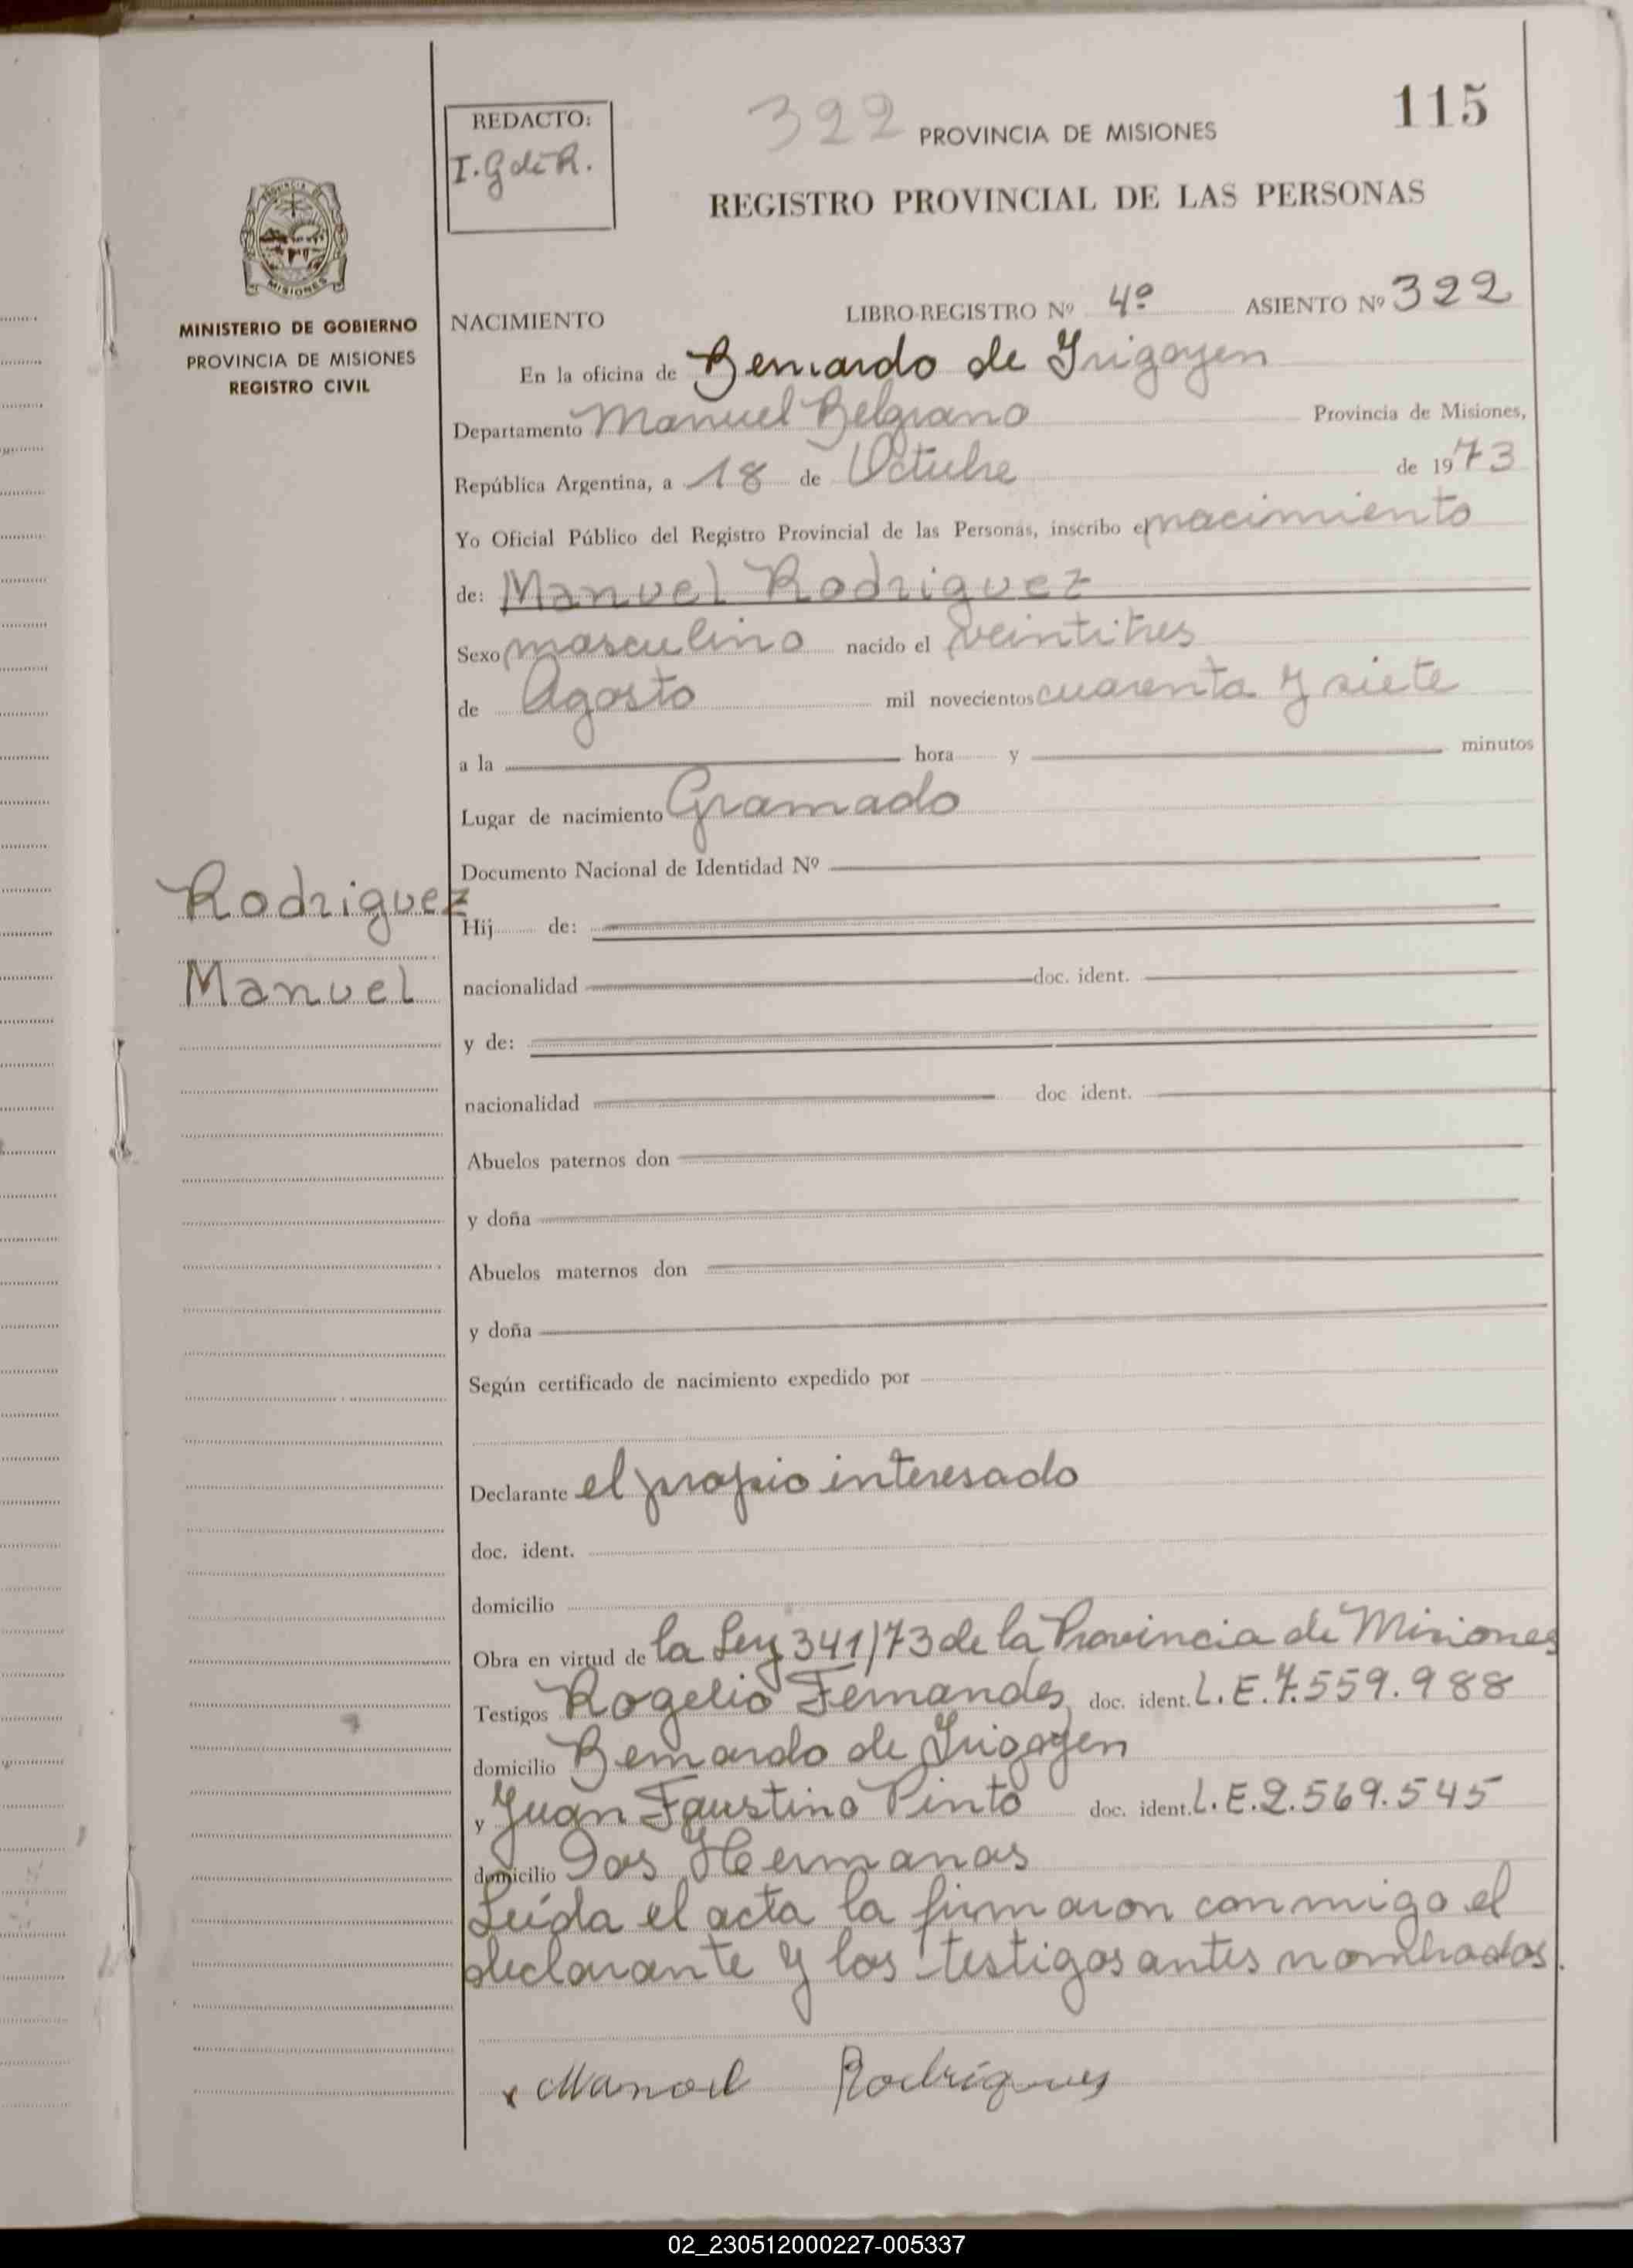 115
REDACTO:
I. G de R.
322 PROVINCIA DE MISIONES
REGISTRO PROVINCIAL DE LAS PERSONAS
MISIONES
MINISTERIO DE GOBIERNO
PROVINCIA DE MISIONES
REGISTRO CIVIL
NACIMIENTO LIBRO-REGISTRO Nº 4º ASIENTO Nº 322
En la oficina de Bernardo de Irigoyen
Departamento Manuel Belgrano Provincia de Misiones,
República Argentina, a 18 de Octubre de 1973
Yo Oficial Público del Registro Provincial de las Personas, inscribo el nacimiento
de: Manuel Rodriguez
Sexo masculino nacido el veintitres
de Agosto mil novecientos cuarenta y siete
a la hora y minutos
Lugar de nacimiento Gramado
Documento Nacional de Identidad Nº
Rodriguez
Manuel
Hij de:
nacionalidad doc. ident.
y de:
nacionalidad doc ident.
Abuelos paternos don
y doña
Abuelos maternos don
y doña
Según certificado de nacimiento expedido por
Declarante el propio interesado
doc. ident.
domicilio
Obra en virtud de la Ley 341/73 de la Provincia de Misiones
Testigos Rogelio Fernandes, doc. ident. L.E. 7.559.988
domicilio Bernardo de Irigoyen
y Juan Faustino Pinto doc. ident. L.E. 2.569.545
domicilio Dos Hermanas
Leída el acta la firmaron conmigo el
declarante y los testigos antes nombrados.
x Manoel Rodrigues
02_230512000227-005337